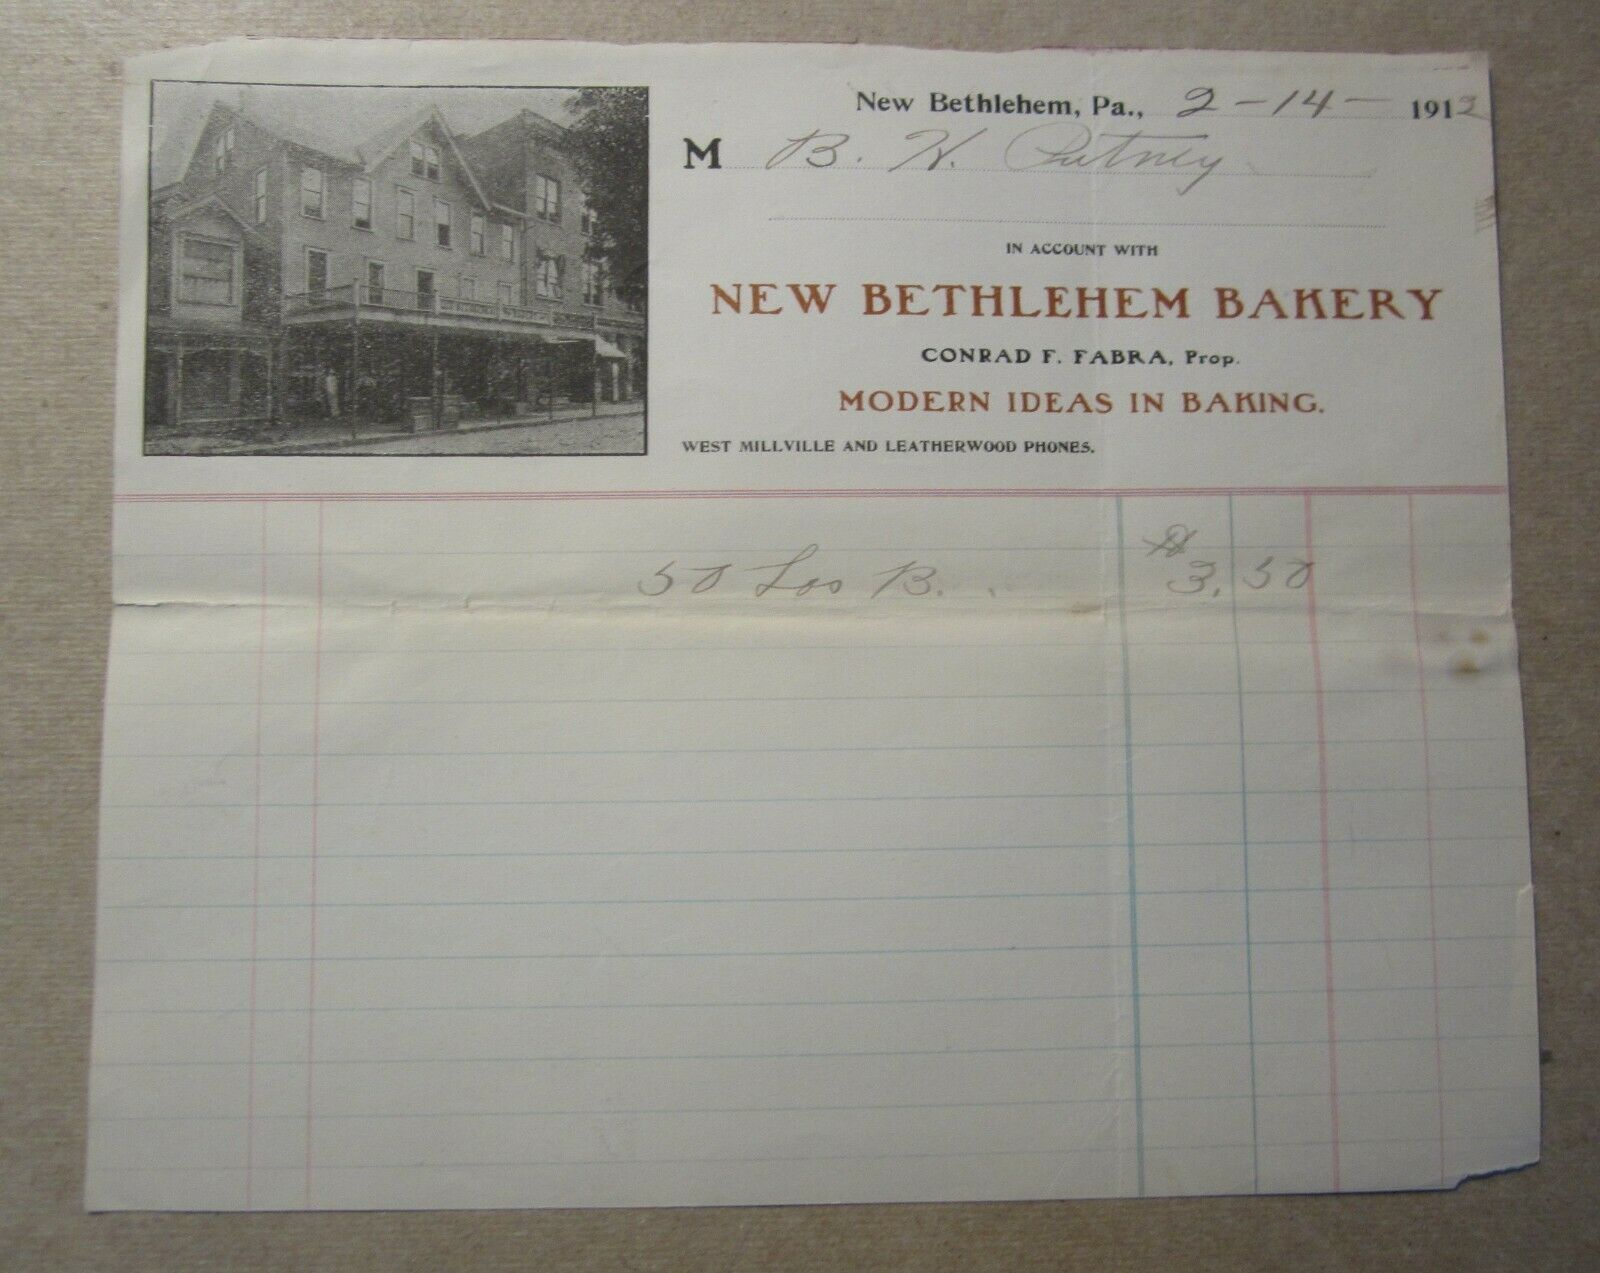 New Bethlehem, Pa., 2-14- 1912
M B. H. Putney
IN ACCOUNT WITH
NEW BETHLEHEM BAKERY
CONRAD F. FABRA, Prop.
MODERN IDEAS IN BAKING.
WEST MILLVILLE AND LEATHERWOOD PHONES.
50 Los B. $3.50